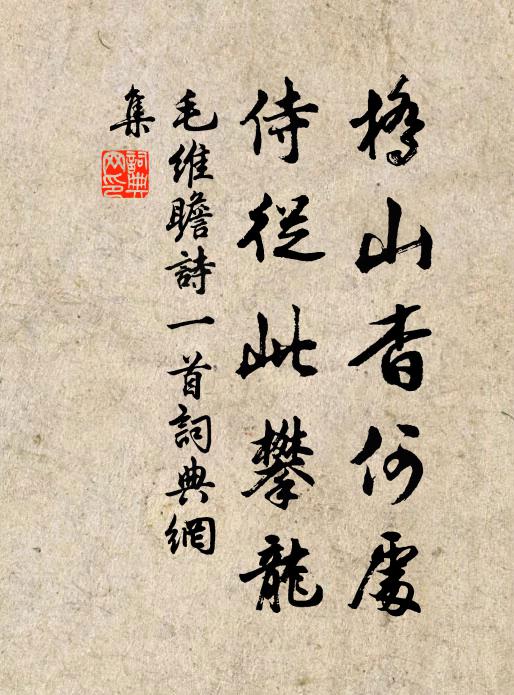 橋山杳何處
侍從此攀龍
毛維瞻詩一首詞典網
集
詞典網印